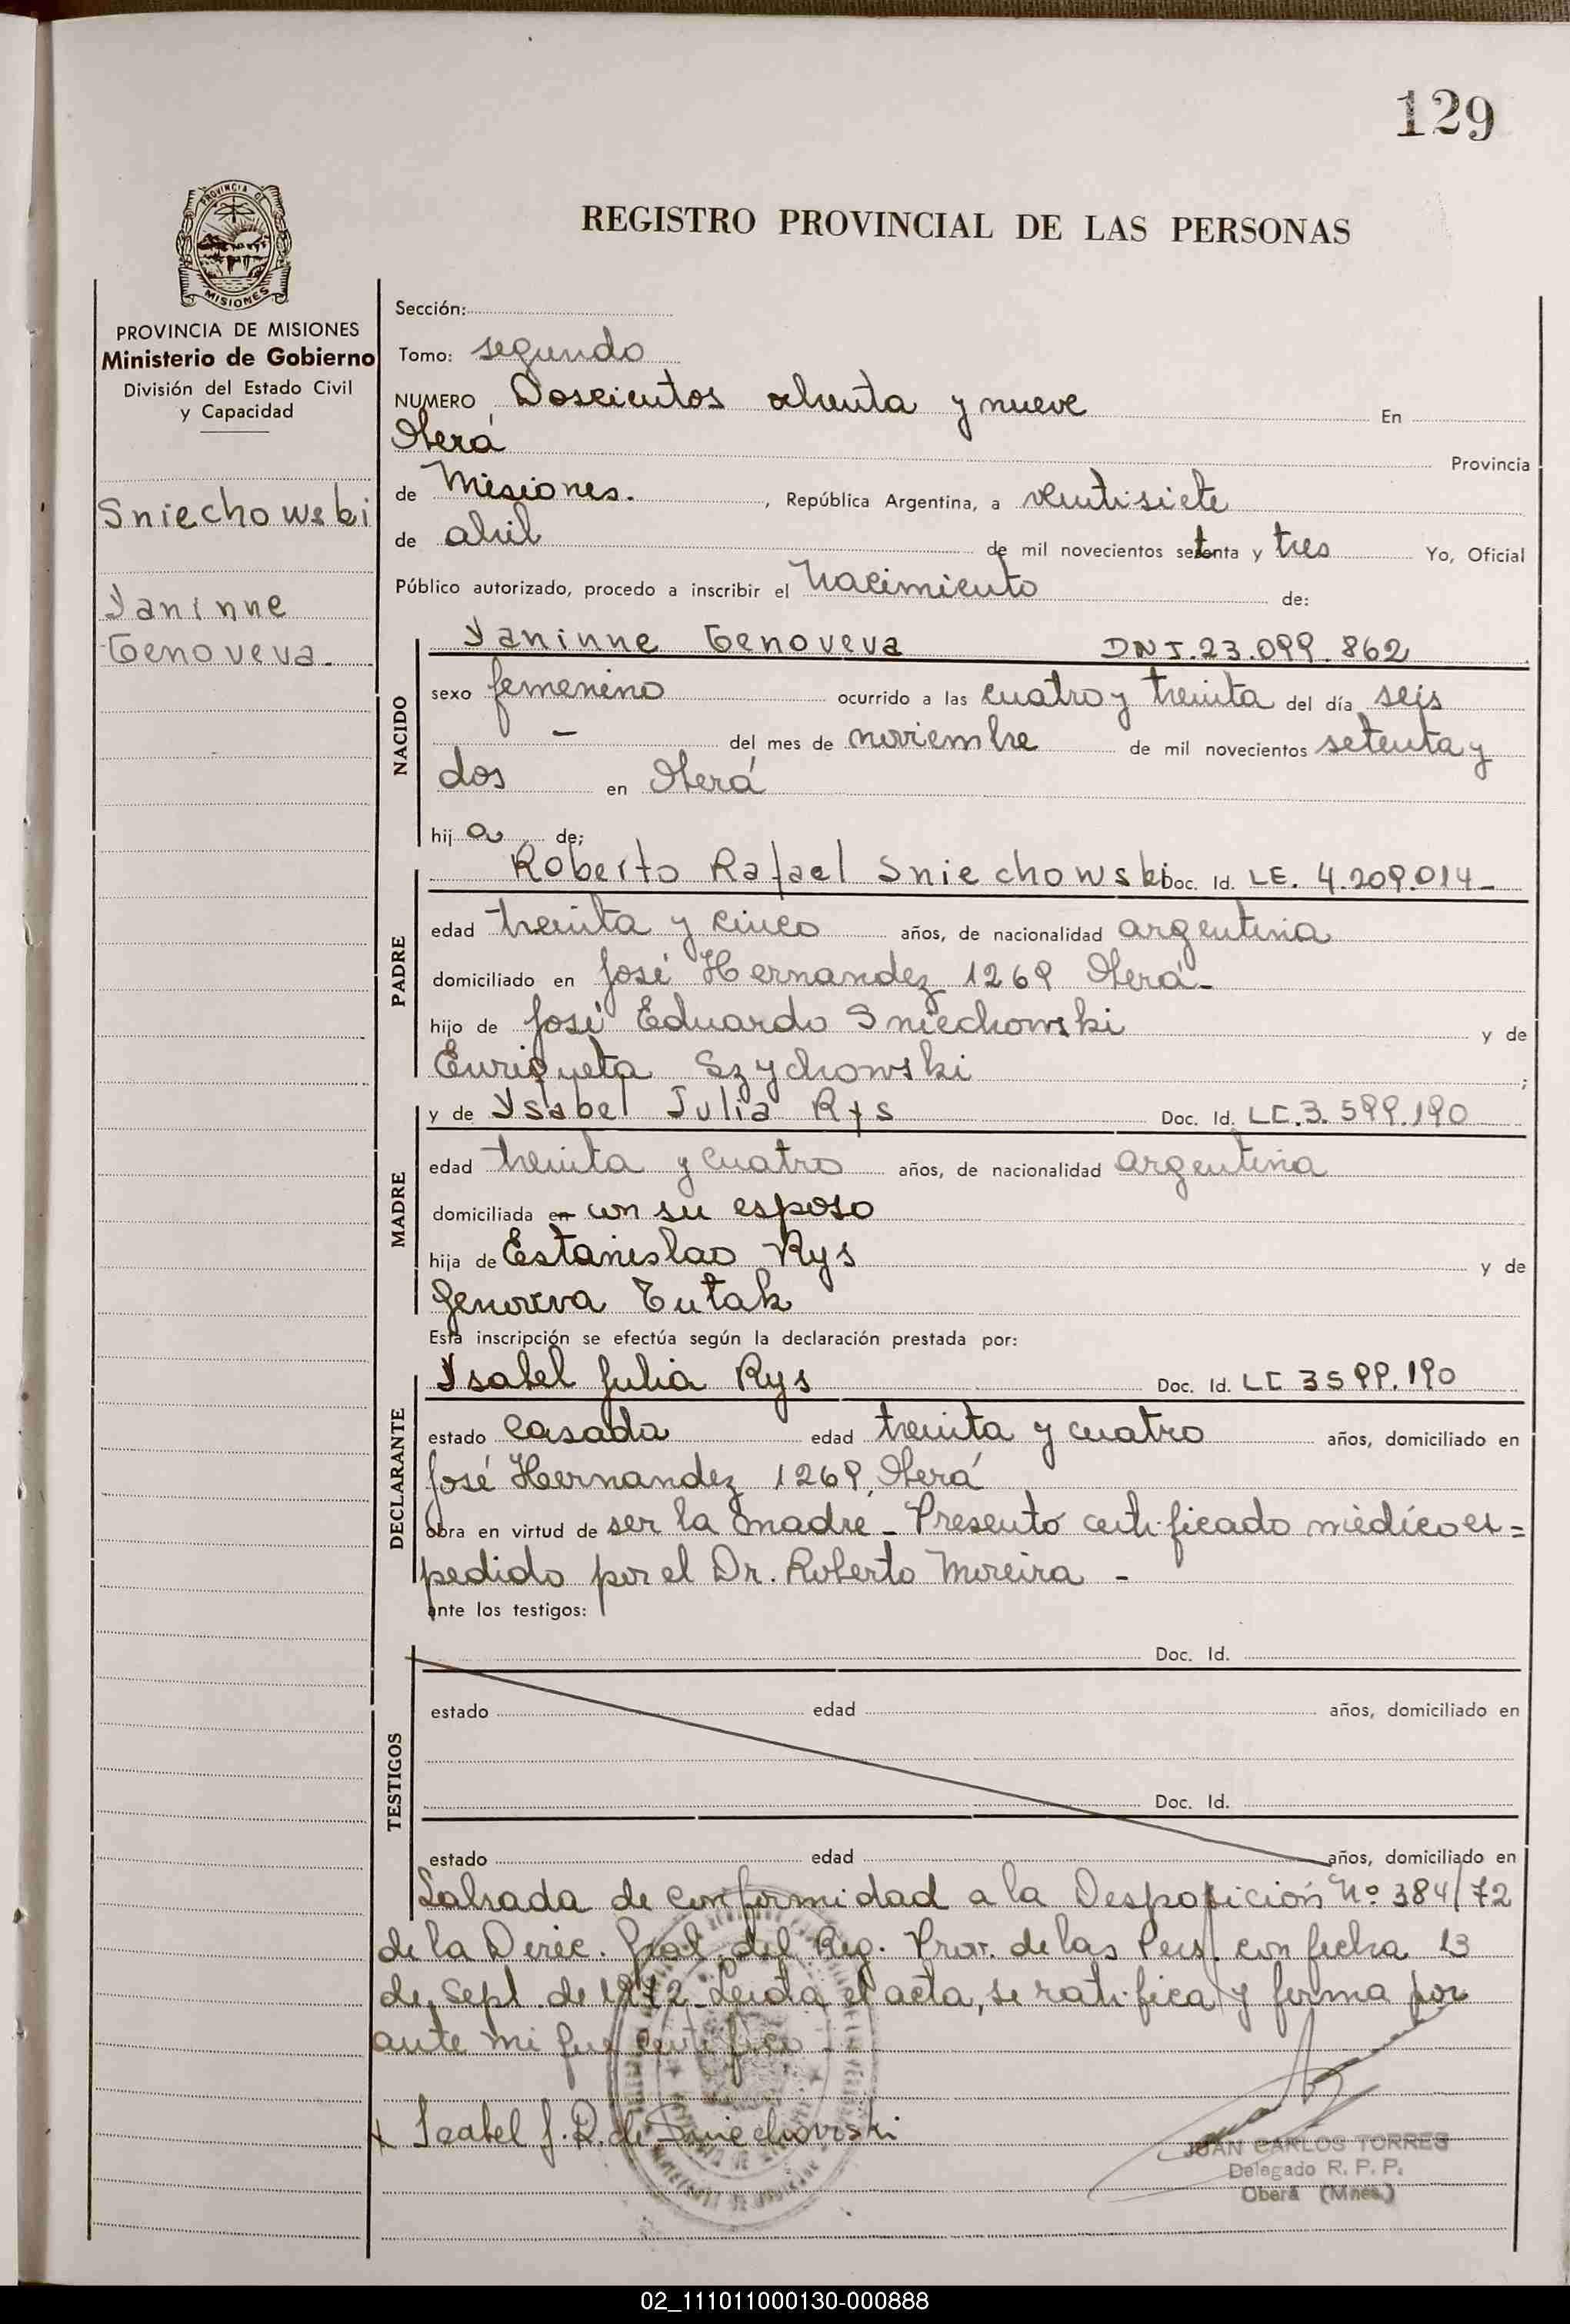 129
PROVINCIA DE
MISIONES
REGISTRO PROVINCIAL DE LAS PERSONAS
PROVINCIA DE MISIONES
Ministerio de Gobierno
División del Estado Civil
y Capacidad
Sniechowski
Yaninne
Genoveva.
Sección:
Tomo: segundo
NUMERO Doscientos ochenta y nueve En
Oberá Provincia
de Misiones. , República Argentina, a ventisiete
de abril de mil novecientos setenta y tres Yo, Oficial
Público autorizado, procedo a inscribir el Nacimiento de:
NACIDO
Yaninne Genoveva DNI.23.099.862
sexo femenino ocurrido a las cuatro y treinta del día seis
– del mes de noviembre de mil novecientos setenta y
dos en Oberá
hij a de;
PADRE
Roberto Rafael Sniechowski Doc. Id. LE. 4.209.014-
edad treinta y cinco años, de nacionalidad argentina
domiciliado en José Hernandez 1269 Oberá-
hijo de José Eduardo Sniechowski y de
Enriqueta Szychowski ;
MADRE
y de Ysabel Julia Rys Doc. Id. LC.3.599.190
edad treinta y cuatro años, de nacionalidad argentina
domiciliada en con su esposo
hija de Estanislao Rys y de
Genoveva Tutak
Esta inscripción se efectúa según la declaración prestada por:
DECLARANTE
Ysabel Julia Rys Doc. Id. LC 3599.190
estado casada edad treinta y cuatro años, domiciliado en
José Hernandez 1269, Oberá
obra en virtud de ser la madre - Presentó certificado médico es=
pedido por el Dr. Roberto Moreira -
ante los testigos:
TESTIGOS
Doc. Id.
estado edad años, domiciliado en
Doc. Id.
estado edad años, domiciliado en
Labrada de conformidad a la Desposición Nº 384/72
de la Direc. Gral. del Reg. Prov. de las Pers. con fecha 13
de Sept. de 1972. Leida el acta, se ratifica y firma por
ante mi que certifico -
x Isabel J. R. de Sniechowski
JUAN CARLOS TORRES
Delegado R. P. P.
Oberá (Mnes.)
02_111011000130-000888